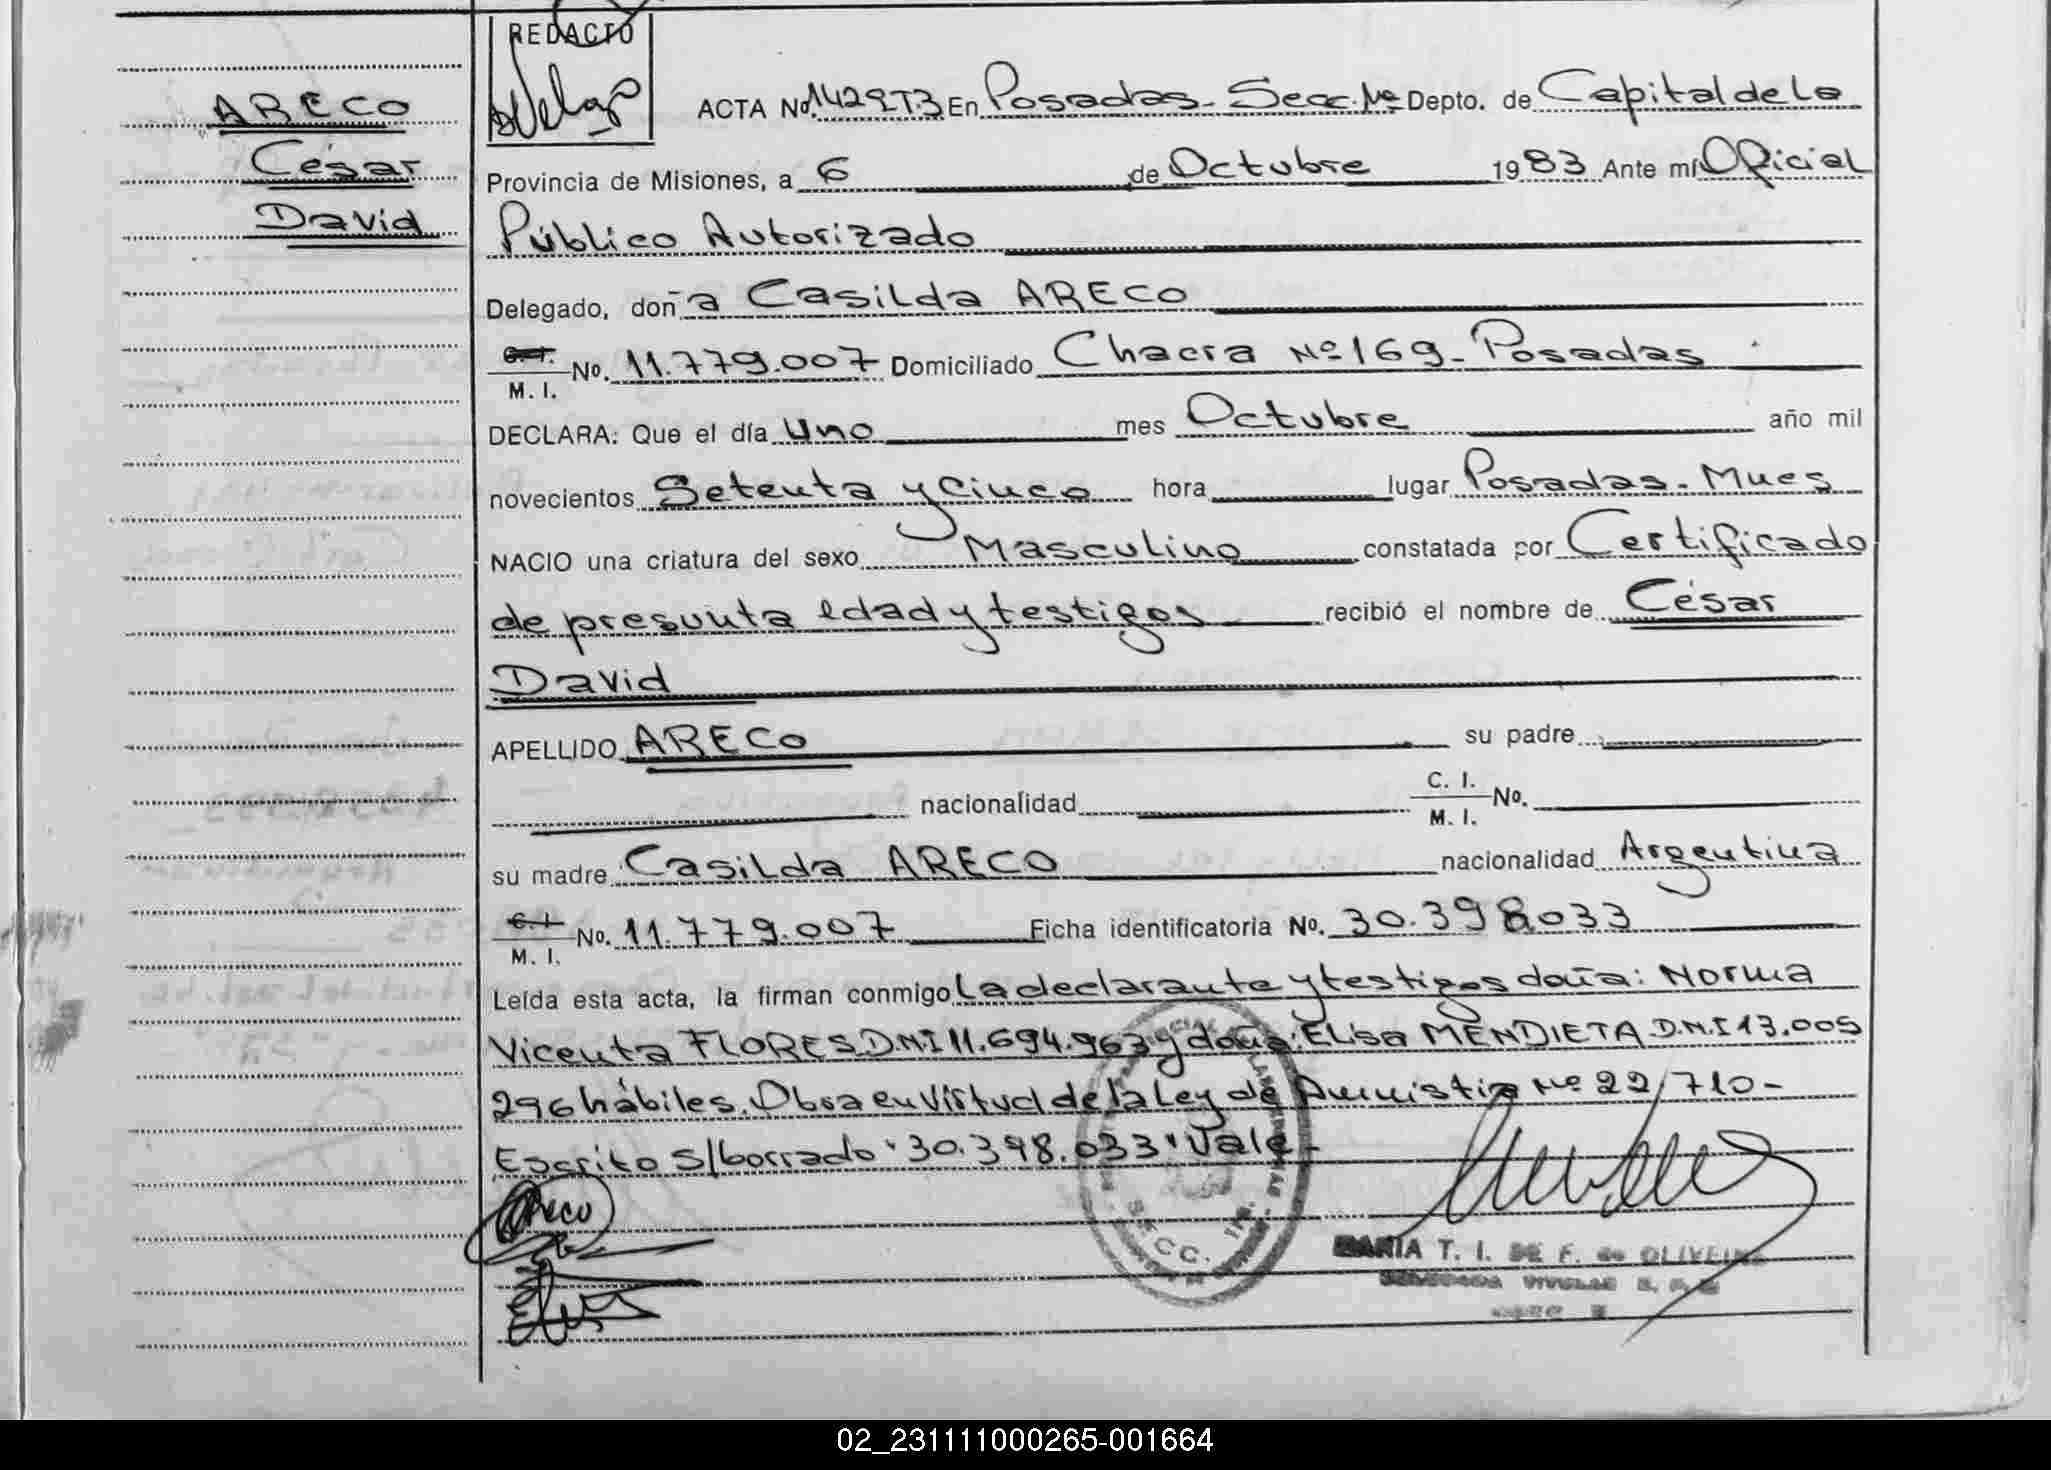 ARECO
César
David
REDACTO
ACTA No. 1429T3 En Posadas - Secc. 1ª Depto. de Capital de la
Provincia de Misiones, a 6 de Octubre 1983 Ante mí Oficial
Público Autorizado
Delegado, doña Casilda ARECO
C. I.
M. I. No. 11.779.007 Domiciliado Chacra Nº 169 - Posadas
DECLARA: Que el día Uno mes Octubre año mil
novecientos Setenta y Cinco hora lugar Posadas - Mnes
NACIO una criatura del sexo Masculino constatada por Certificado
de presunta edad y testigos recibió el nombre de César
David
APELLIDO ARECO su padre
nacionalidad C. I.
M. I. No.
su madre Casilda ARECO nacionalidad Argentina
C. I.
M. I. No. 11.779.007 Ficha identificatoria No. 30.398.033
Leída esta acta, la firman conmigo La declarante y testigos doña: Norma
Vicenta FLORES D.N.I 11.694.963 y doña: Elisa MENDIETA D.N.I 13.005
296 hábiles. Obra en Virtud de la Ley de Amnistia Nº 22.710-
Escrito s/borrado "30.398.033" Vale-
Areco
SECC. 1ra.
MARIA T. I. DE F. de OLIVEIRA
02_231111000265-001664